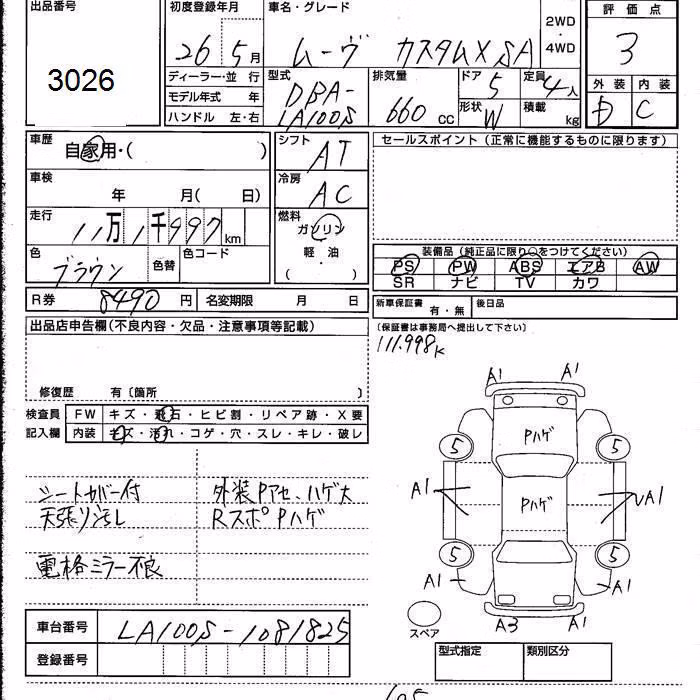 出品番号 初度登録年月 車名・グレード 2WD・4WD 評価点
3026 26年5月 ムーヴ カスタムX SA 3
ディーラー・並行 型式 排気量 ドア 定員 外装 内装
モデル年式 年 DBA- 5 4人 C
ハンドル 左・右 LA100S 660cc 形状 W 積載 kg
車歴 自家用・( ) シフト AT セールスポイント (正常に機能するものに限ります)
車検 年 月( 日) 冷房 AC
走行 11万1千997km 燃料 ガソリン
色 ブラウン 色替 色コード 軽・油 ( ・ )
装備品 (純正品に限り○をつけてください)
PS PW ABS エアB AW
SR ナビ TV カワ
R券 8490円 名変期限 月 日 新車保証書 有・無 後日品
出品店申告欄(不良内容・欠品・注意事項等記載) (保証書は事務局へ提出して下さい)
111.998K
修復歴 有〔箇所 〕
検査員 FW キズ・飛石・ヒビ割・リペア跡・X要
記入欄 内装 キズ・汚れ・コゲ・穴・スレ・キレ・破レ
シートカバー付 外装Pアセ、ハゲ大
天張リ汚レ RスポPハゲ
電格ミラー不良
A1 A1
Pハゲ
5 5
A1 Pハゲ A1
5 5
A1 A1
A3 A1
スペア
車台番号 LA100S-1081825
登録番号 型式指定 類別区分